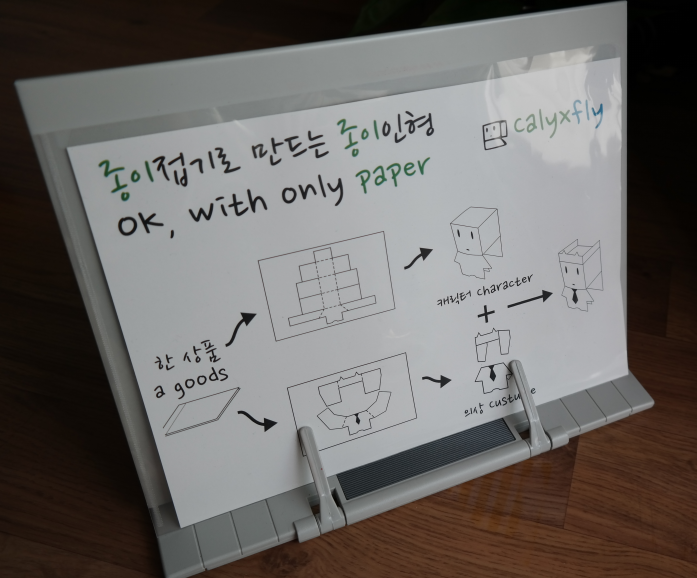 종이접기로 만드는 종이인형
calyxfly
OK, with only paper
캐릭터 character
+
한 상품
a goods
의상